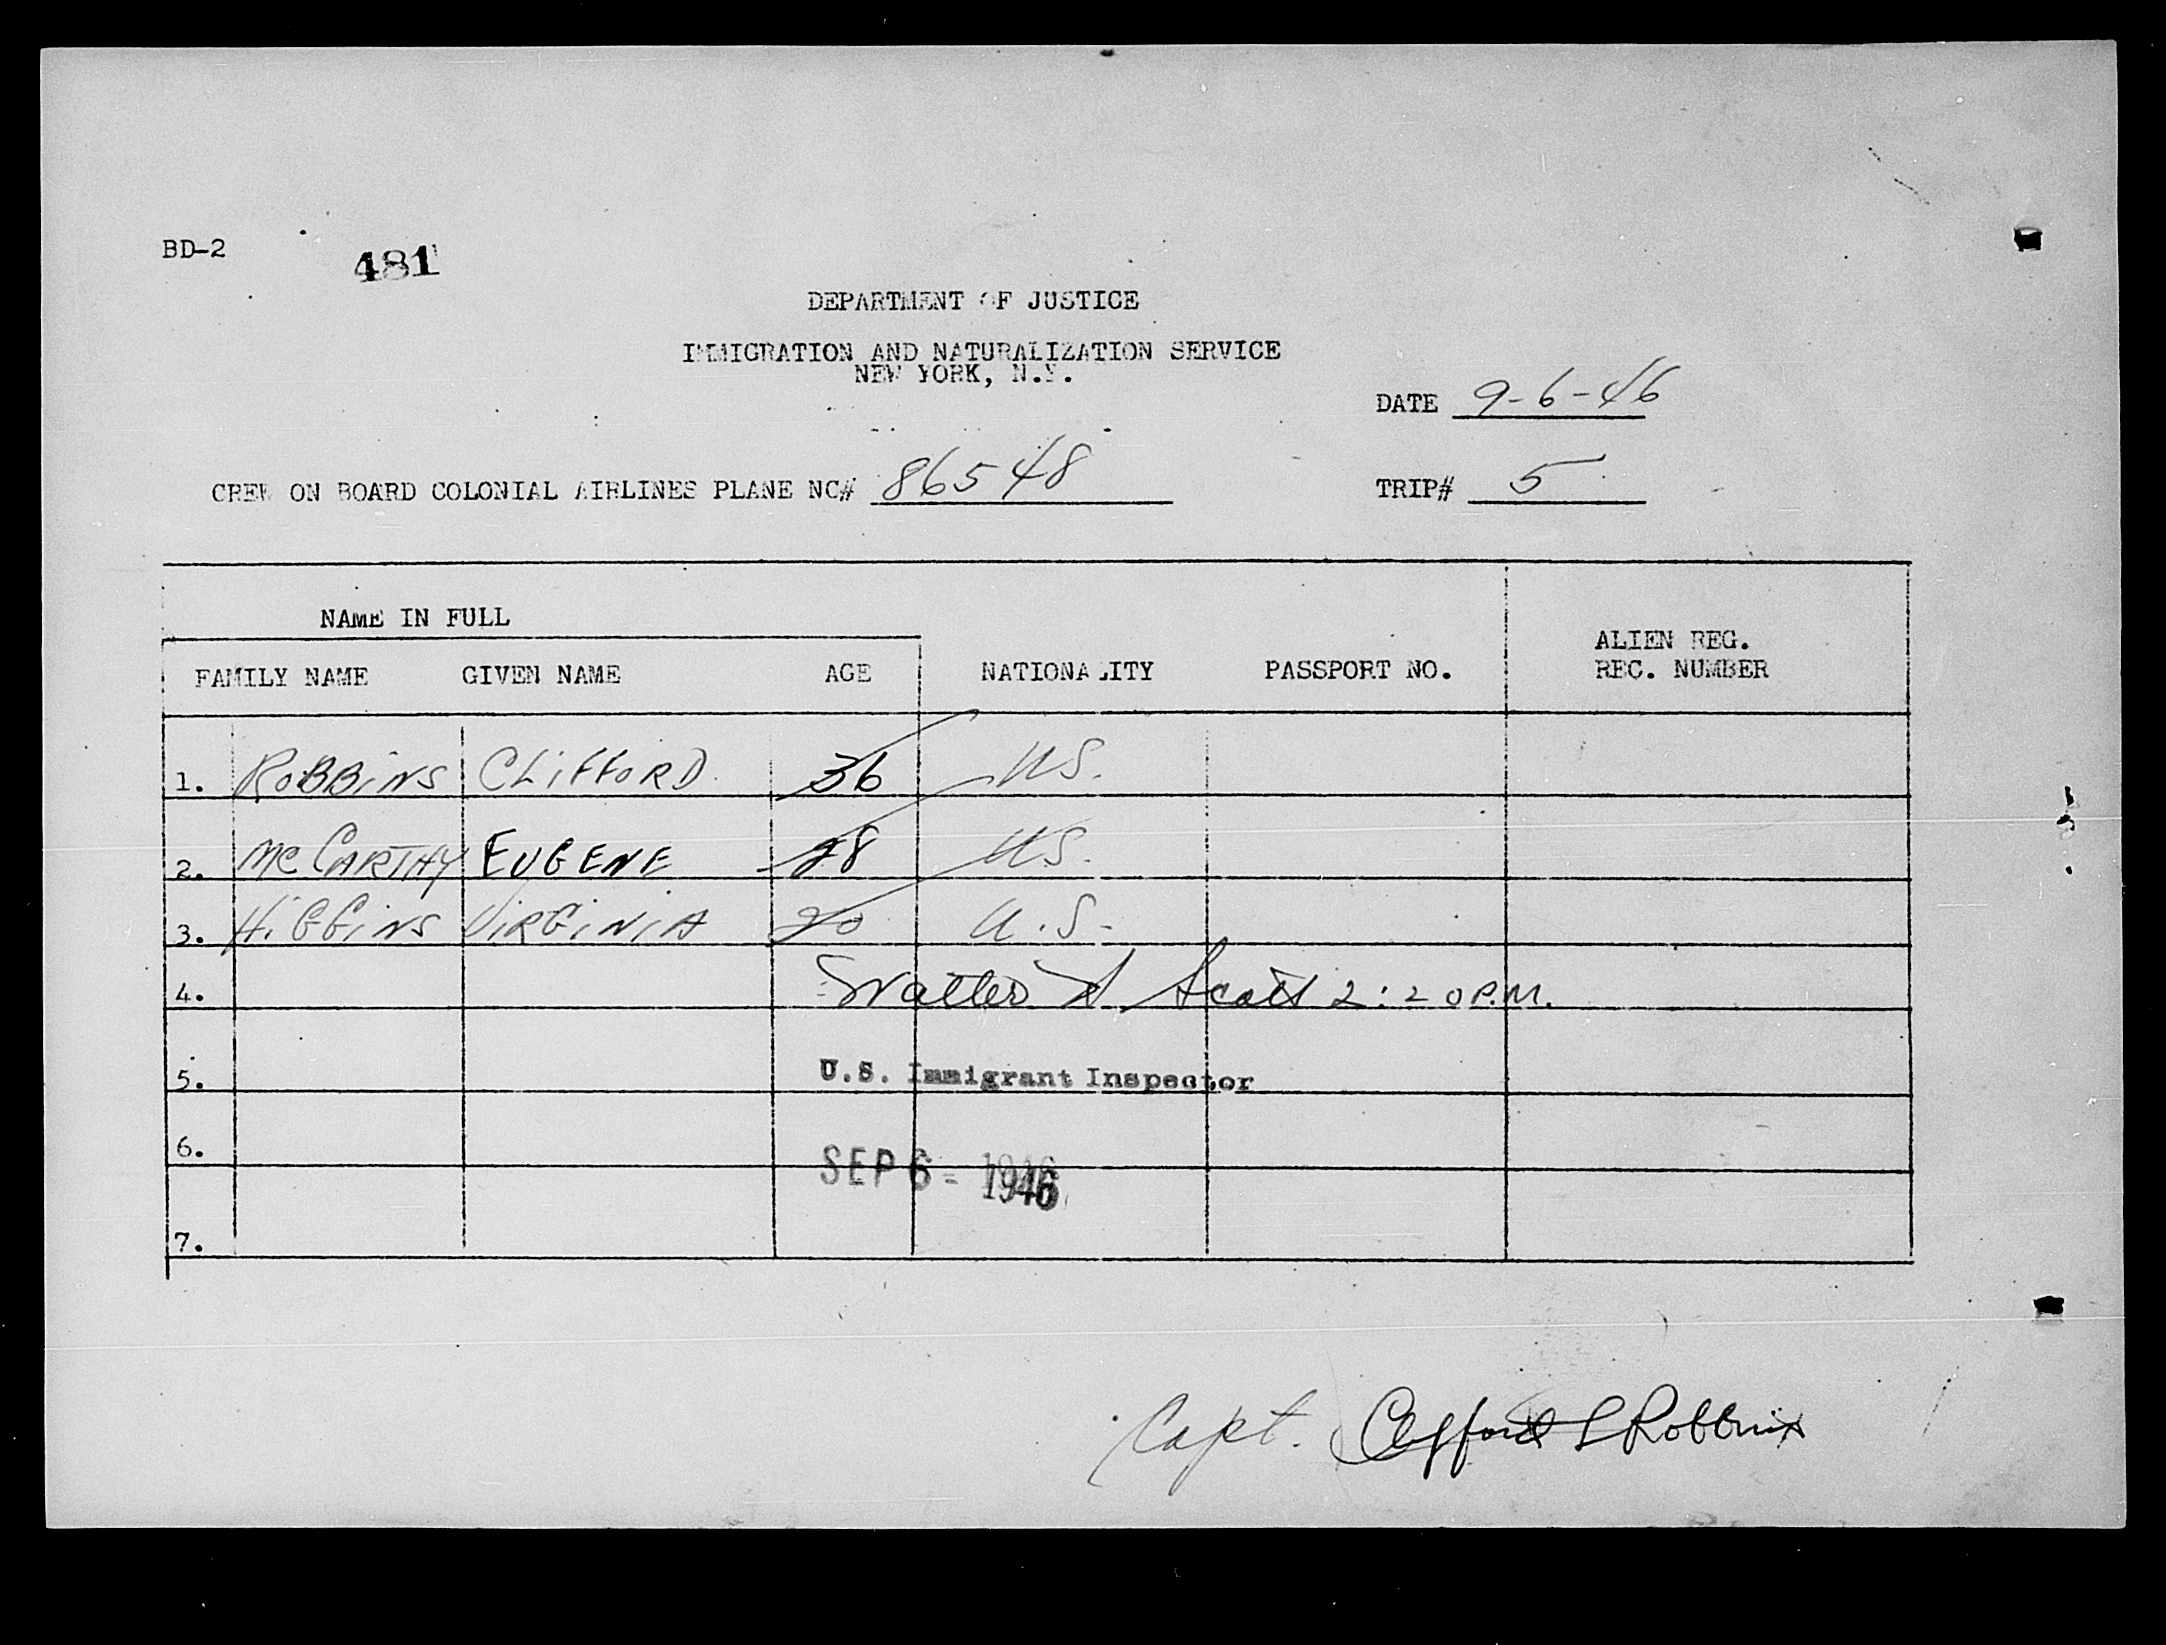 BD-2 481
DEPARTMENT OF JUSTICE
IMMIGRATION AND NATURALIZATION SERVICE
NEW YORK, N.Y.
DATE 9-6-46
CREW ON BOARD COLONIAL AIRLINES PLANE NC# 86548 TRIP# 5
NAME IN FULL
FAMILY NAME GIVEN NAME AGE NATIONALITY PASSPORT NO. ALIEN REG. REC. NUMBER
1. ROBBINS CLIFFORD 36 US.
2. McCARTHY EUGENE 28 US.
3. HIGGINS VIRGINIA 20 U.S.
4. Walter Scott 2:20 P.M.
5. U.S. Immigrant Inspector
6. SEP 6 - 1946
7.
Capt. Clifford L Robbins